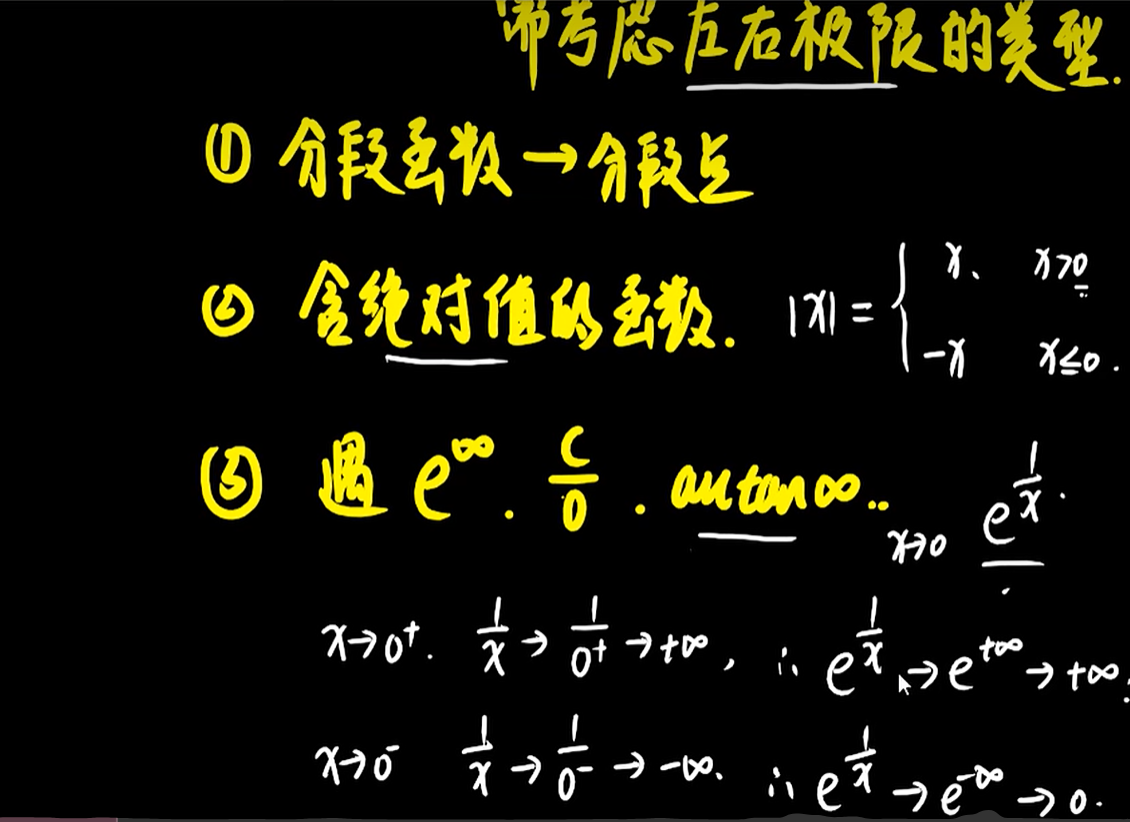 需考虑左右极限的类型.
① 分段函数→分段点
② 含绝对值的函数. |x| = { x、 x>0
-x x≤0.
③ 遇 e^∞ . c/0 . arctan∞.. x→0 e^(1/x).
x→0⁺. 1/x → 1/0⁺ → +∞, ∴ e^(1/x) → e^(+∞) → +∞;
x→0⁻ 1/x → 1/0⁻ → -∞. ∴ e^(1/x) → e^(-∞) → 0.